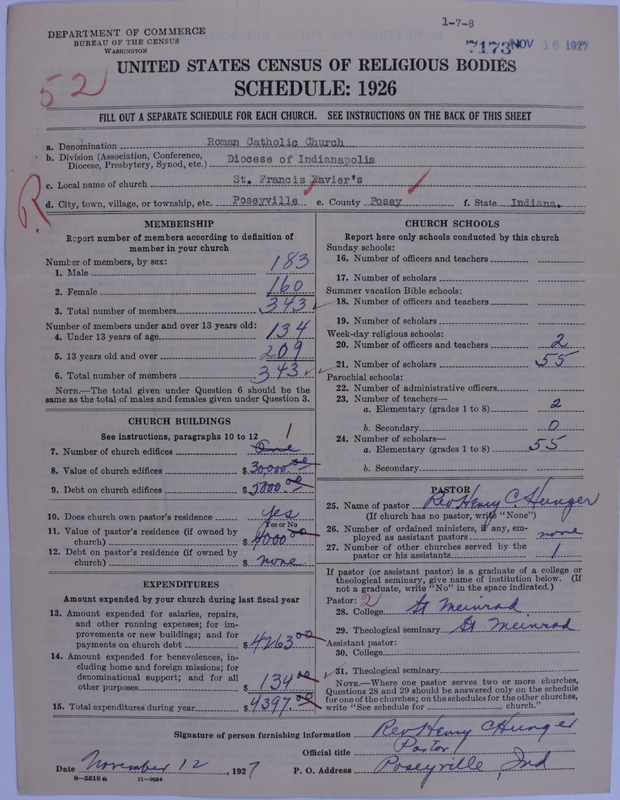 1-7-8
DEPARTMENT OF COMMERCE
BUREAU OF THE CENSUS
WASHINGTON
7173 NOV 16 1927
52
UNITED STATES CENSUS OF RELIGIOUS BODIES
SCHEDULE: 1926
FILL OUT A SEPARATE SCHEDULE FOR EACH CHURCH. SEE INSTRUCTIONS ON THE BACK OF THIS SHEET
a. Denomination Roman Catholic Church
b. Division (Association, Conference, Diocese of Indianapolis
Diocese, Presbytery, Synod, etc.)
c. Local name of church St. Francis Xavier's
R
d. City, town, village, or township, etc. Poseyville e. County Posey f. State Indiana.
MEMBERSHIP
Report number of members according to definition of
member in your church
Number of members, by sex:
1. Male 183
2. Female 160
3. Total number of members 343
Number of members under and over 13 years old:
4. Under 13 years of age 134
5. 13 years old and over 209
6. Total number of members 343
NOTE.—The total given under Question 6 should be the
same as the total of males and females given under Question 3.
CHURCH BUILDINGS
See instructions, paragraphs 10 to 12
7. Number of church edifices One 1
8. Value of church edifices $ 30,000.00
9. Debt on church edifices $ 5000.00
10. Does church own pastor's residence Yes
Yes or No
11. Value of pastor's residence (if owned by
church) $ 4000.00
12. Debt on pastor's residence (if owned by
church) $ none
EXPENDITURES
Amount expended by your church during last fiscal year
13. Amount expended for salaries, repairs,
and other running expenses; for im-
provements or new buildings; and for
payments on church debt $ 4263.00
14. Amount expended for benevolences, in-
cluding home and foreign missions; for
denominational support; and for all
other purposes $ 134.00
15. Total expenditures during year $ 4397.00
CHURCH SCHOOLS
Report here only schools conducted by this church
Sunday schools:
16. Number of officers and teachers
17. Number of scholars
Summer vacation Bible schools:
18. Number of officers and teachers
19. Number of scholars
Week-day religious schools:
20. Number of officers and teachers 2
21. Number of scholars 55
Parochial schools:
22. Number of administrative officers
23. Number of teachers—
a. Elementary (grades 1 to 8) 2
b. Secondary 0
24. Number of scholars—
a. Elementary (grades 1 to 8) 55
b. Secondary
PASTOR
25. Name of pastor Rev Henry C. Hunger
(If church has no pastor, write "None")
26. Number of ordained ministers, if any, em-
ployed as assistant pastors none
27. Number of other churches served by the
pastor or his assistants 1
If pastor (or assistant pastor) is a graduate of a college or
theological seminary, give name of institution below. (If
not a graduate, write "No" in the space indicated.)
Pastor: 2
28. College St Meinrad
29. Theological seminary St Meinrad
Assistant pastor:
30. College
31. Theological seminary
NOTE.—Where one pastor serves two or more churches,
Questions 28 and 29 should be answered only on the schedule
for one of the churches; on the schedules for the other churches,
write "See schedule for church."
Signature of person furnishing information Rev Henry C Hunger
Official title Pastor
Date November 12, 1927 P. O. Address Poseyville, Ind
8—5518 a 11—9054